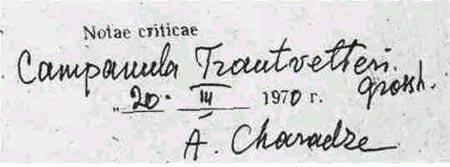 Notae criticae
Campanula Trautvetteri.
grossh.
„ 20. III 1970 г.
A. Charadze